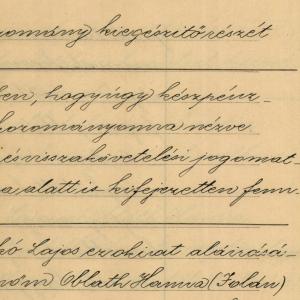 romány kiegészitőrészét
ben, hogyúgy készpénz-
hozományomra nézve
ésvisszakövetelési jogomat-
a alatt is kifejezetten fenn-
kó Lajos ez okirat aláirásá-
nőm Oblath Hanna (Jolán)